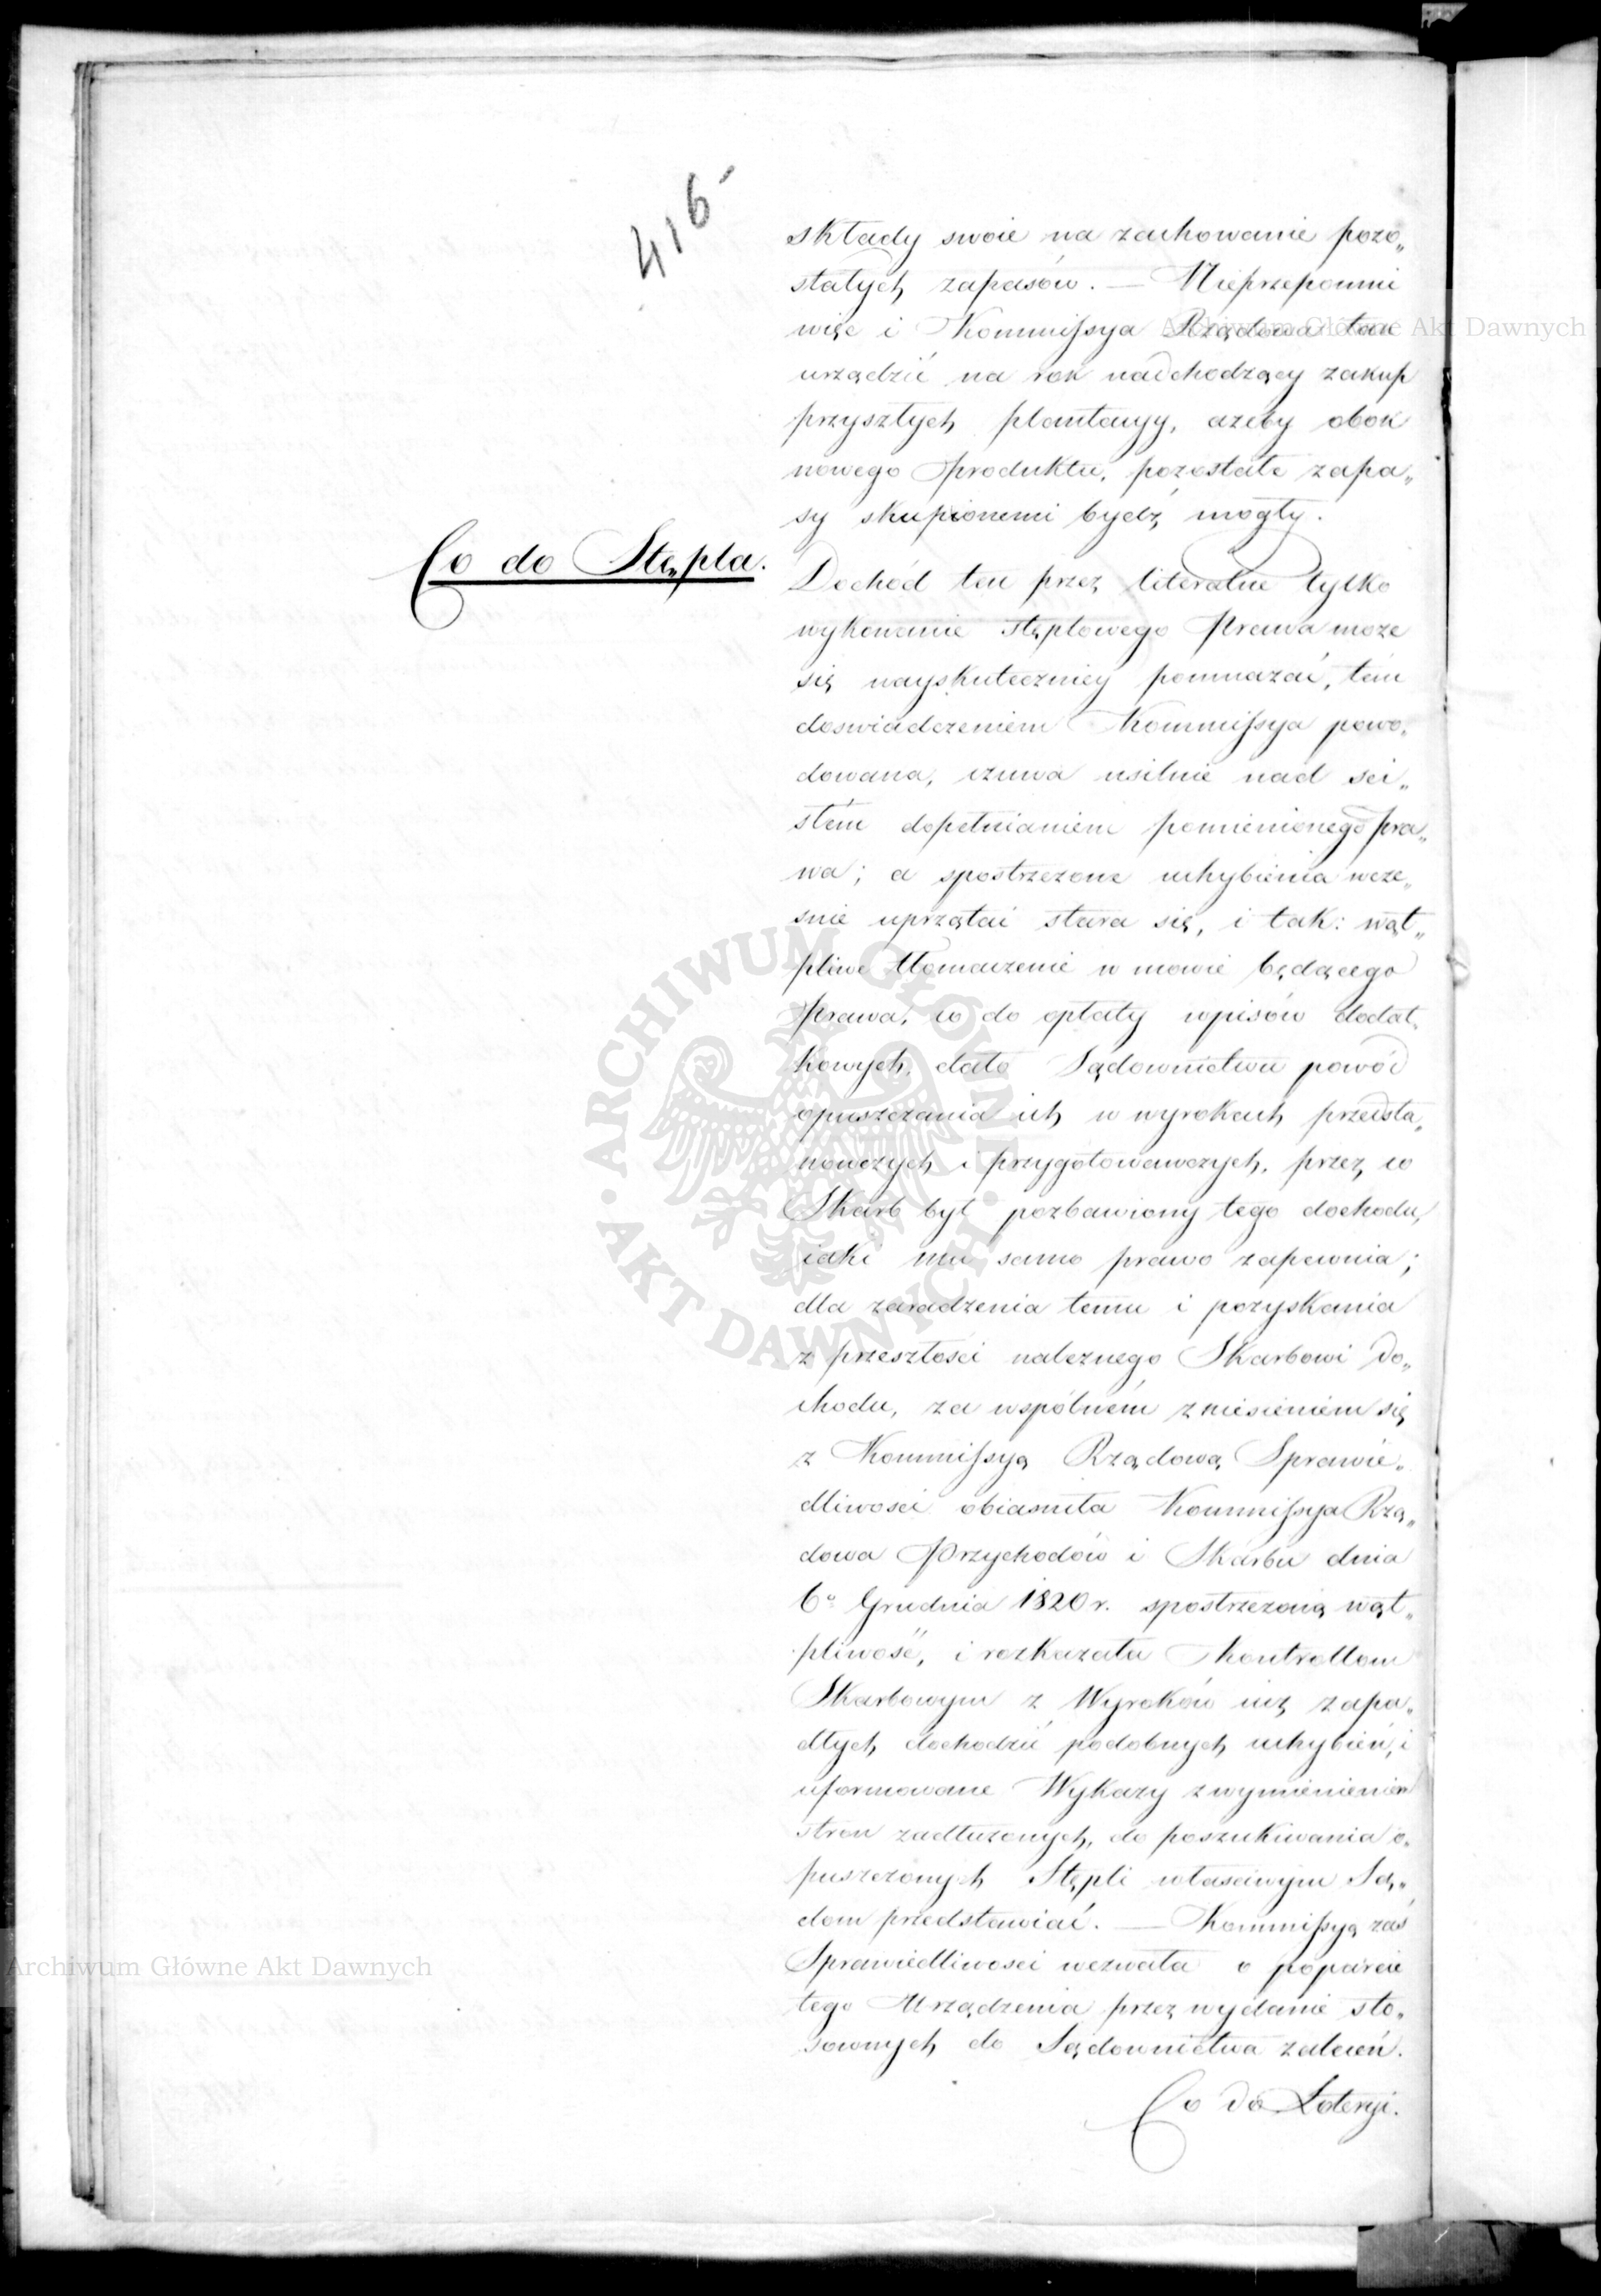 416
składy swoie na zachowanie pozo„
stałych zapasów. — Nieprzepomni
więc i Kommissya Rządowa tak
urządzić na rok nadchodzący zakup
przyszłych plantacyy, ażeby obok
nowego produktu, pozostałe zapa„
sy skupionemi bydź mogły.
Co do Stępla.
Dochód ten przez literalne tylko
wykonanie stęplowego Prawa może
się nayskuteczniey pomnażać, tém
doswiadczeniem Kommissya powo„
dowana, czuwa usilnie nad sci„
słém dopełnianiem pomienionego pra„
wa; a spostrzeżone uchybienia wcze„
snie uprzątać stara się, i tak: wąt„
pliwe tłomaczenie w mowie będącego
Prawa, co do opłaty wpisów dodat„
kowych, dało Sądownictwu powód
opuszczania ich w wyrokach przedsta„
nowczych i przygotowawczych, przez co
Skarb był pozbawiony tego dochodu,
iaki mu samo prawo zapewnia;
dla zaradzenia temu i pozyskania
z przeszłości należnego Skarbowi do„
chodu, za wspólném zniesieniem się
z Kommissyą Rządową Sprawie„
dliwości obiasniła Kommissya Rzą„
dowa Przychodów i Skarbu dnia
6º Grudnia 1820 r. spostrzeżoną wąt„
pliwość, i rozkazała Kontrollom
Skarbowym z Wyroków iuż zapa„
dłych dochodzić podobnych uchybień, i
uformowane Wykazy z wymienieniem
stron zadłużonych, do poszukiwania o„
puszczonych Stępli własciwym Są„
dom przedstawiać. — Kommissyą zaś
Sprawiedliwości wezwała o poparcie
tego Urządzenia przez wydanie sto„
sownych do Sądownictwa zaleceń.
Co do Loteryi.
Archiwum Główne Akt Dawnych
Archiwum Główne Akt Dawnych
ARCHIWUM GŁÓWNE · AKT DAWNYCH ·